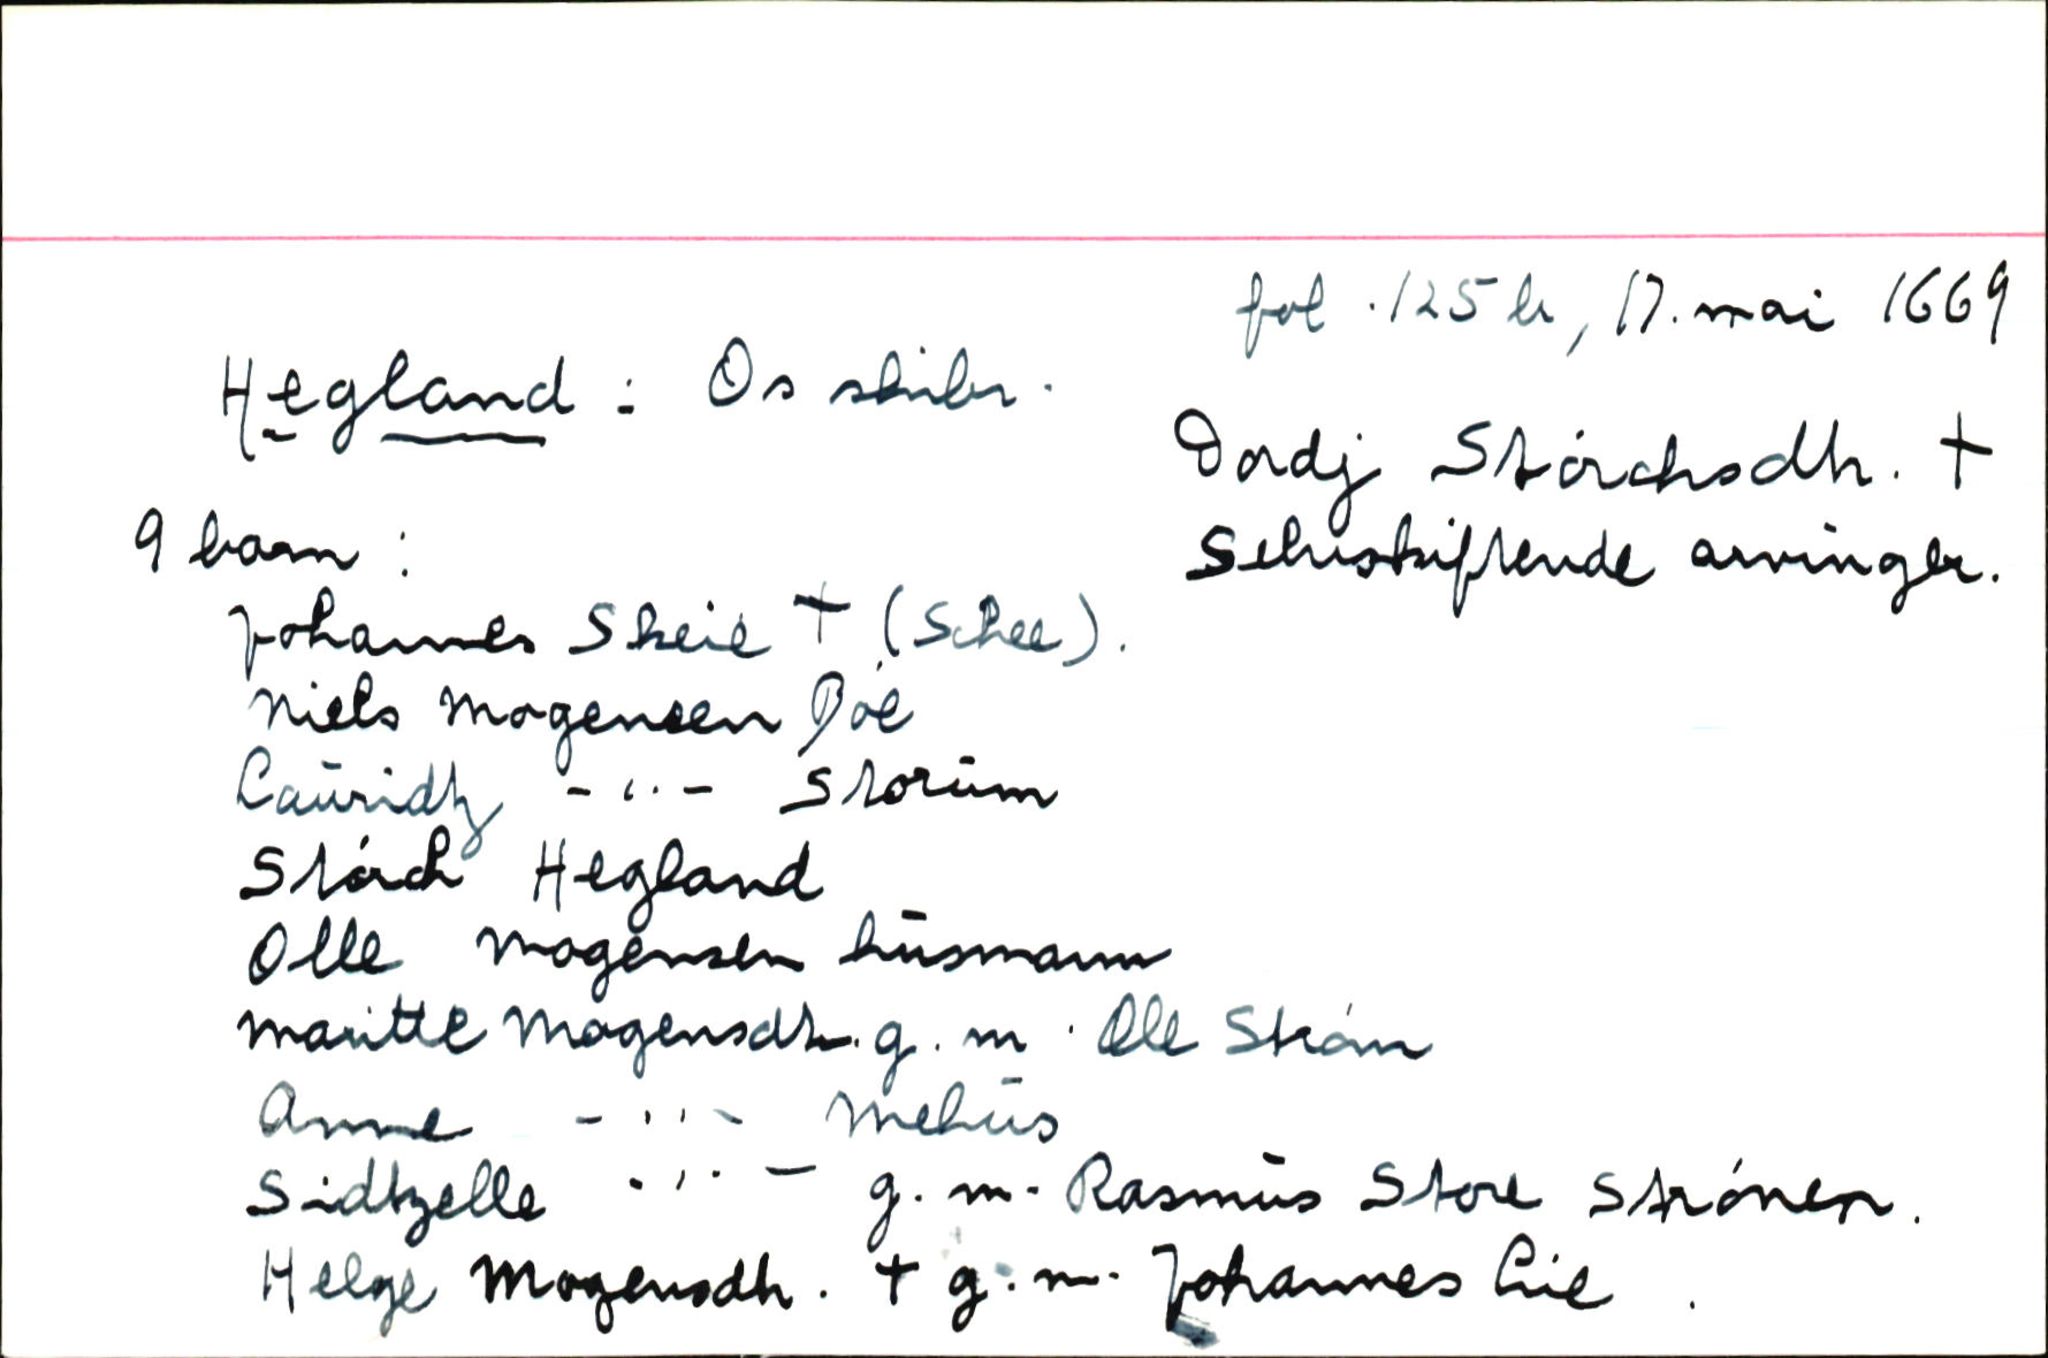 fol. 125 b, 17. mai 1669
Hegland : Os skibr.
Dordj Stórchsdh. †
Selvskiftende arvinger.
9 barn :
Johannes Skeie † (Schee).
Niels Mogensen Bóe
Lauridtz -"- Storum
Stórch Hegland
Olle Mogensen husmann
Maritte Mogensdh. g. m. Ole Stróm
Anne -"- Mehus
Sidtzelle -"- g. m. Rasmus Store Strónen.
Helge Mogensdh. † g. m. Johannes Lie.